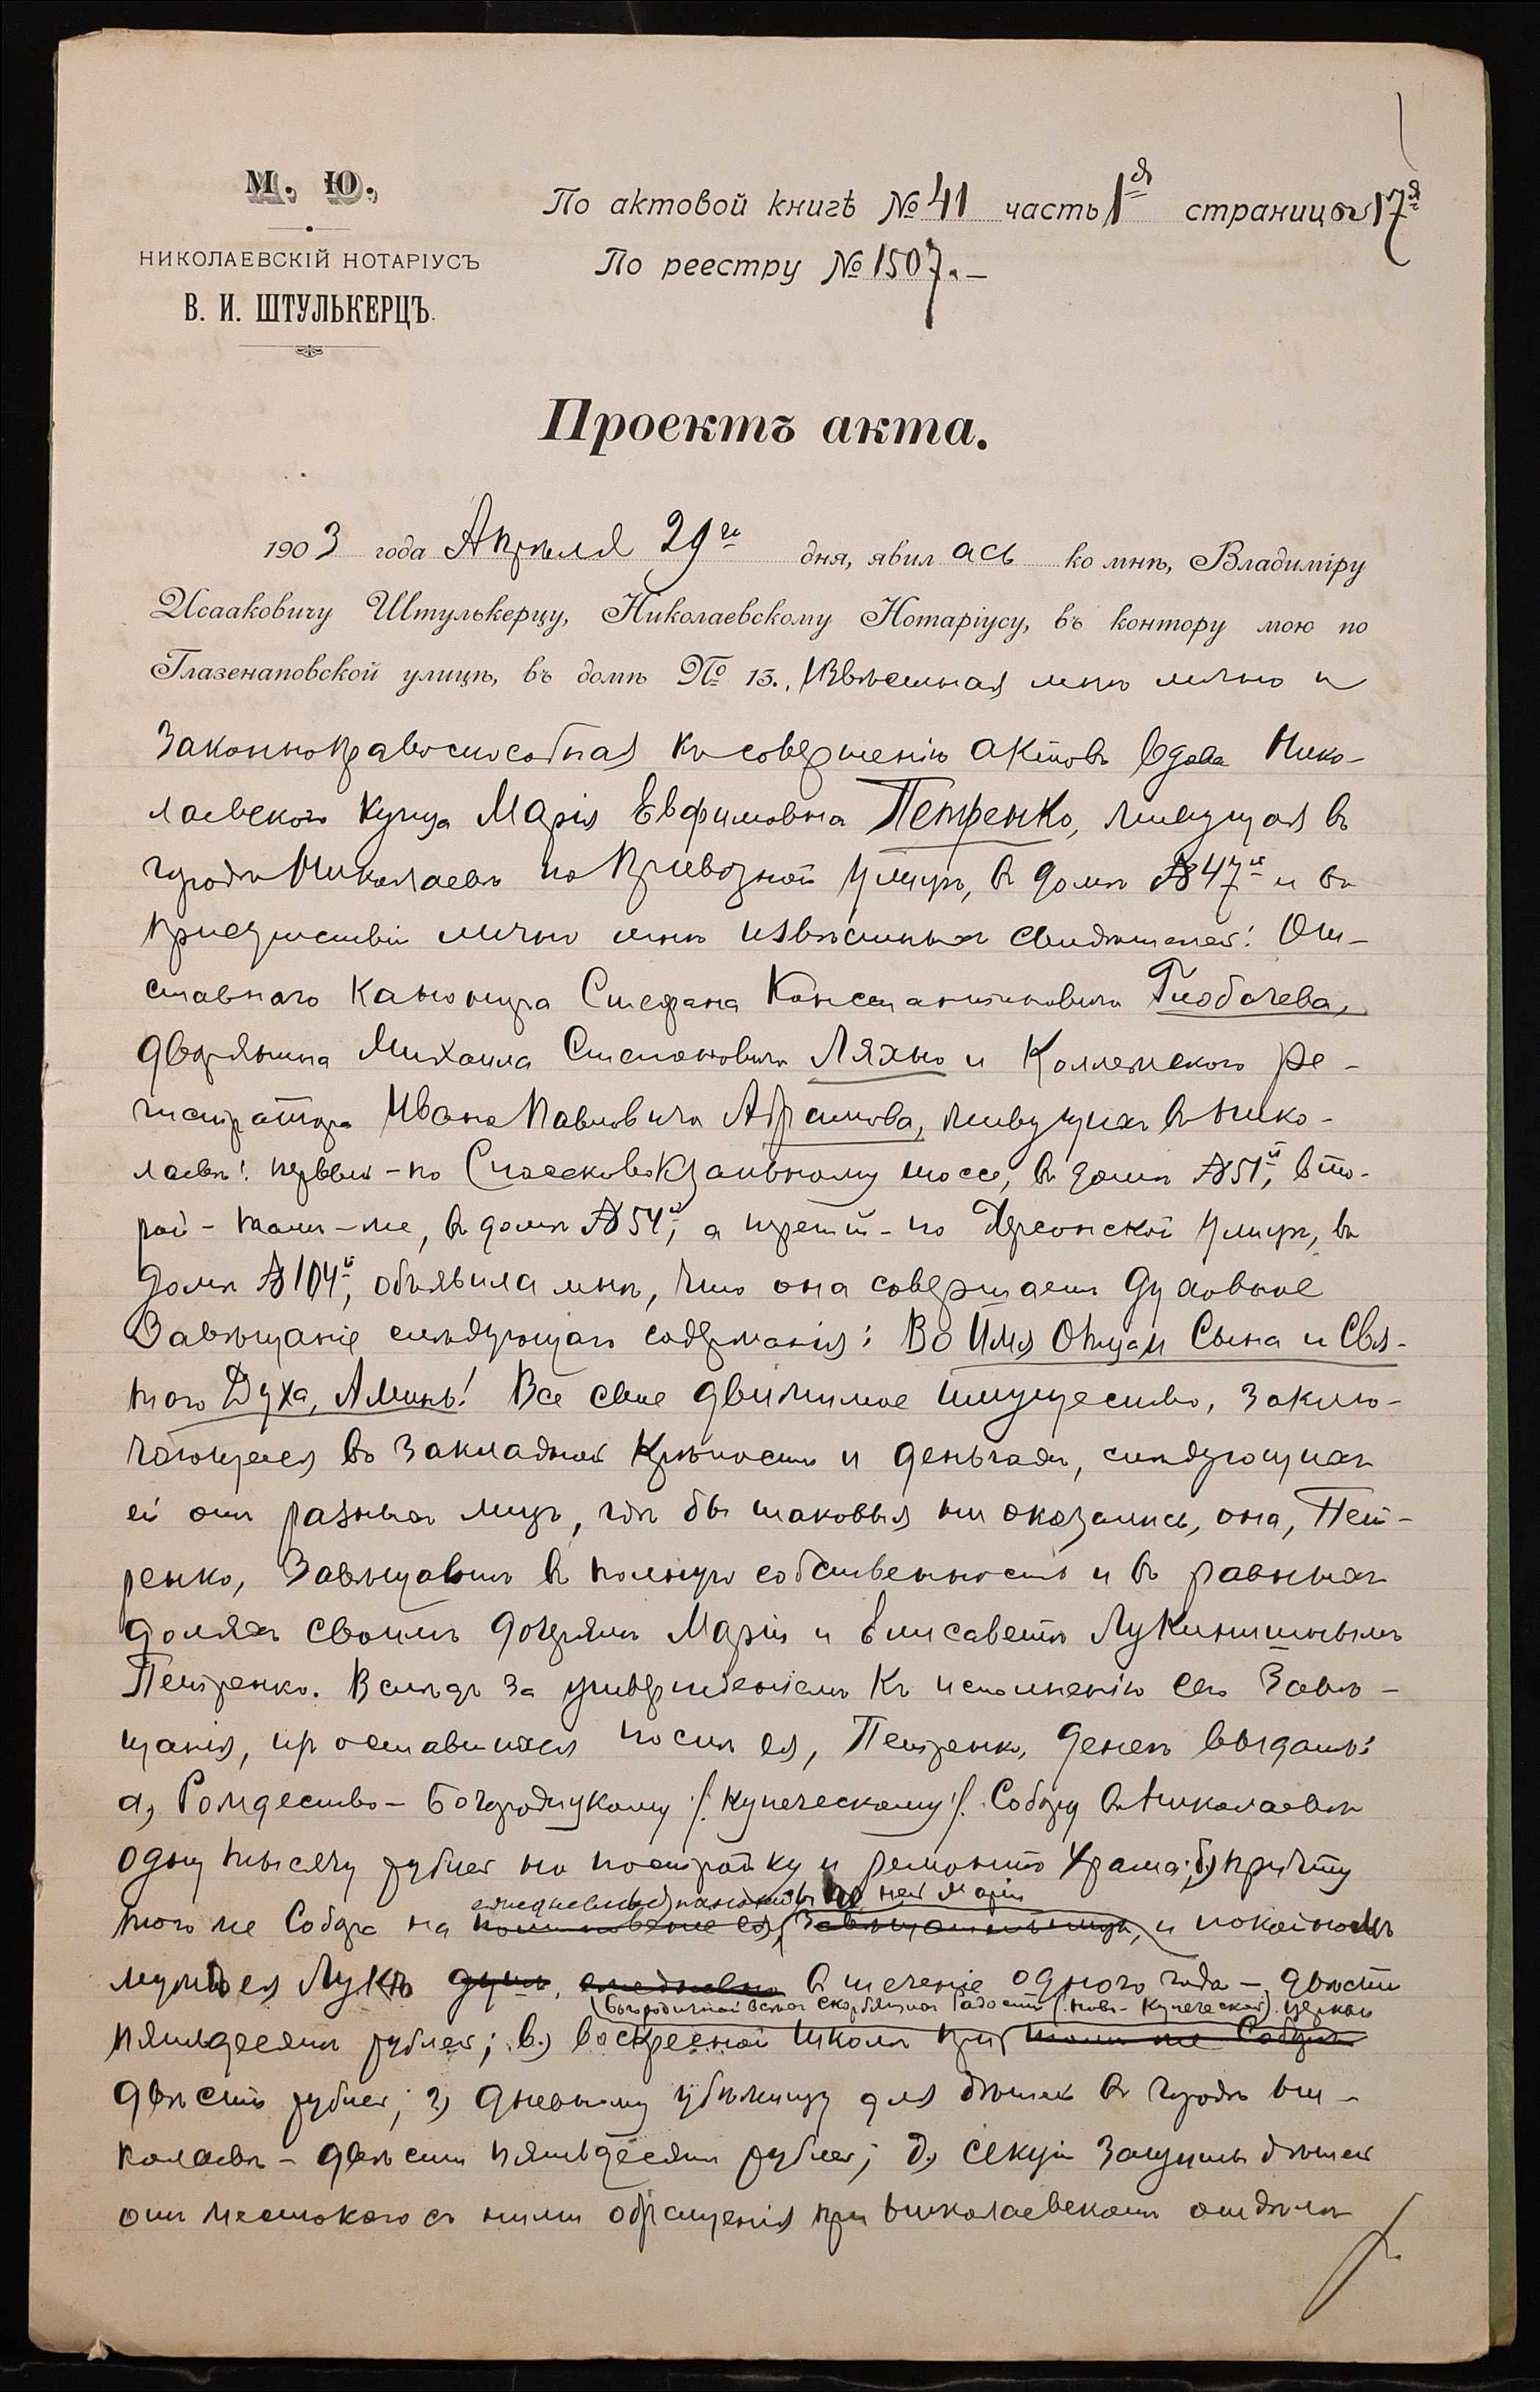 М. Ю.
НИКОЛАЕВСКІЙ НОТАРІУСЪ
В. И. ШТУЛЬКЕРЦЪ.
По актовой книгѣ № 41 часть 1я страница 17я
По реестру № 1507.—
Проектъ акта.
1903 года Апрѣля 29го дня, явилась ко мнѣ, Владиміру
Исааковичу Штулькерцу, Николаевскому Нотаріусу, въ контору мою по
Глазенаповской улицѣ, въ домѣ № 13., Извѣстная мнѣ лично и
законноправоспособная къ совершенію актовъ вдова Нико-
лаевского купца Марія Евфимовна Петренко, живущая въ
городѣ Николаевѣ по Привозной улицѣ, въ домѣ № 47й и въ
присутствіи лично мнѣ извѣстныхъ свидѣтелей: От-
ставного канонира Стефана Константиновича Глобачева,
дворянина Михаила Степановича Ляхно и Коллежского Ре-
гистратора Ивана Павловича Абрамова, живущихъ въ Нико-
лаевѣ: первый - по Спасскому шоссе, въ домѣ № 51й, вто-
рой - тамъ-же, въ домѣ № 54й, а третій - по Херсонской улицѣ, въ
домѣ № 104й, объявила мнѣ, что она совершаетъ духовное
Завѣщаніе слѣдующаго содержанія: Во Имя Отца и Сына и Свя-
того Духа, Аминь! Все свое движимое имущество, заклю-
чающееся въ закладной крѣпости и деньгахъ, слѣдующихъ
ей отъ разныхъ лицъ, гдѣ бы таковыя ни оказались, она, Пет-
ренко, Завѣщаетъ въ полную собственность и въ равныхъ
доляхъ своимъ дочерямъ Маріи и Елисаветѣ Лукинишнымъ
Петренко. Вслѣдъ за утвержденіемъ къ исполненію сего Завѣ-
щанія, изъ оставшихся послѣ ея, Петренко, денегъ выдать:
а) Рождество-Богородицкому /. Купеческому ./ Собору въ Николаевѣ
одну тысячу рублей на постройку и ремонтъ храма; б) причту
ежедневныя по ней Маріи
того же Собора на поминовеніе ея, Завѣщательницы, и покойномъ
мужѣ ея Лукѣ душъ, ежедневно въ теченіе одного года - двѣсти
Богородичной всѣхъ скорбящихъ Радости (. Ново-Купеческой .) церкви
пятьдесятъ рублей; в) воскресной школѣ при томъ же Соборѣ
двѣсти рублей; г) дневному убѣжищу для дѣтей въ городѣ Ни-
колаевѣ - двѣсти пятьдесятъ рублей; д) секціи защиты дѣтей
отъ жестокаго съ ними обращенія при Николаевскомъ отдѣлѣ